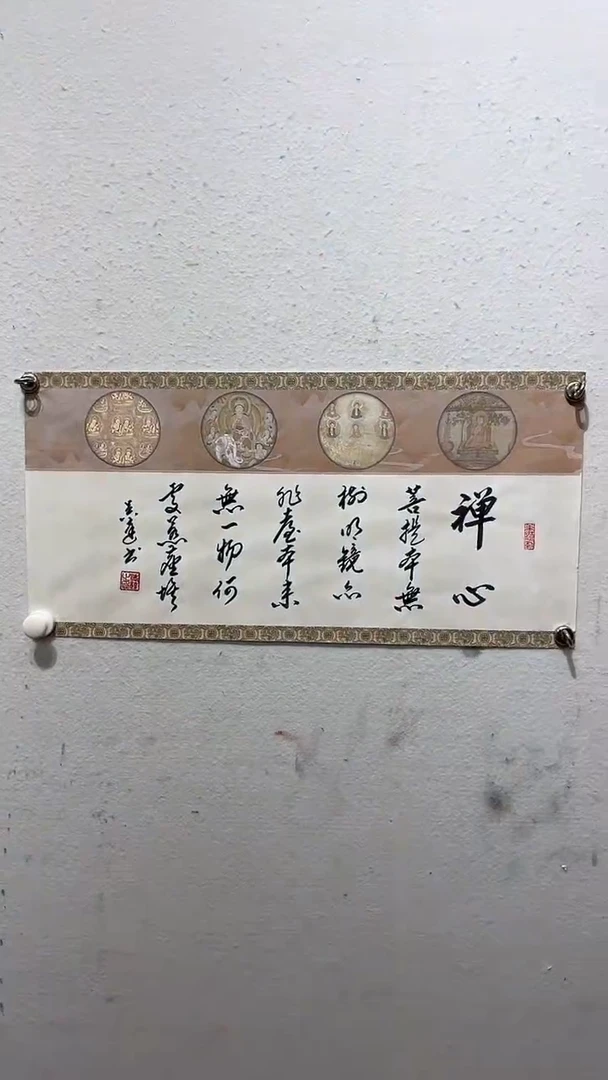 禅心
菩提本無
樹明鏡亦
非臺本来
無一物何
處惹塵埃
書